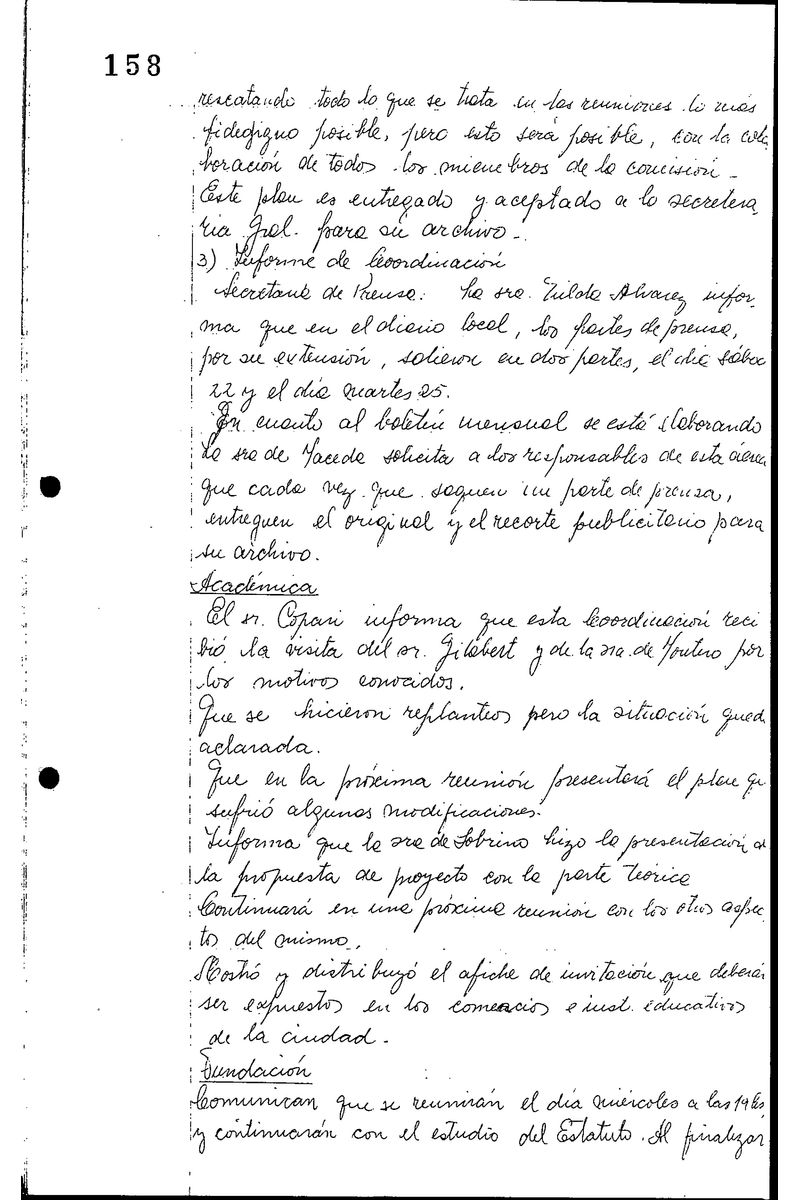 158
rescatando todo lo que se trata en las reuniones lo más
fidedigno posible, pero esto será posible, con la cola
boración de todos los miembros de la comisión -
Este plan es entregado y aceptado a la secreta
ria Gral. para su archivo -
3) Informe de Coordinación
Secretaria de Prensa: La sra. Hilda Alvarez infor
ma que en el diario local, los partes de prensa,
por su extensión, salieron en dos partes, el día sába
22 y el día martes 25.
En cuanto al boletín mensual se está elaborando
La sra de Maceda solicita a los responsables de esta área
que cada vez que saquen un parte de prensa,
entreguen el original y el recorte publicitario para
su archivo.
Académica
El sr. Copari informa que esta Coordinación reci
bió la visita del sr. Gilabert y de la sra. de Montero por
los motivos conocidos.
Que se hicieron replanteos pero la situación qued
aclarada.
Que en la próxima reunión presentará el plan qu
sufrió algunas modificaciones.
Informa que la sra de Sobrino hizo la presentación d
la propuesta de proyecto con la parte teórica
Continuará en una próxima reunión con los otros aspec
tos del mismo.
Mostró y distribuyó el afiche de invitación que deberán
ser expuestos en los comercios e inst. educativos
de la ciudad.
Fundación
Comunican que se reunirán el día miércoles a las 19 hs,
y continuarán con el estudio del Estatuto. Al finalizar